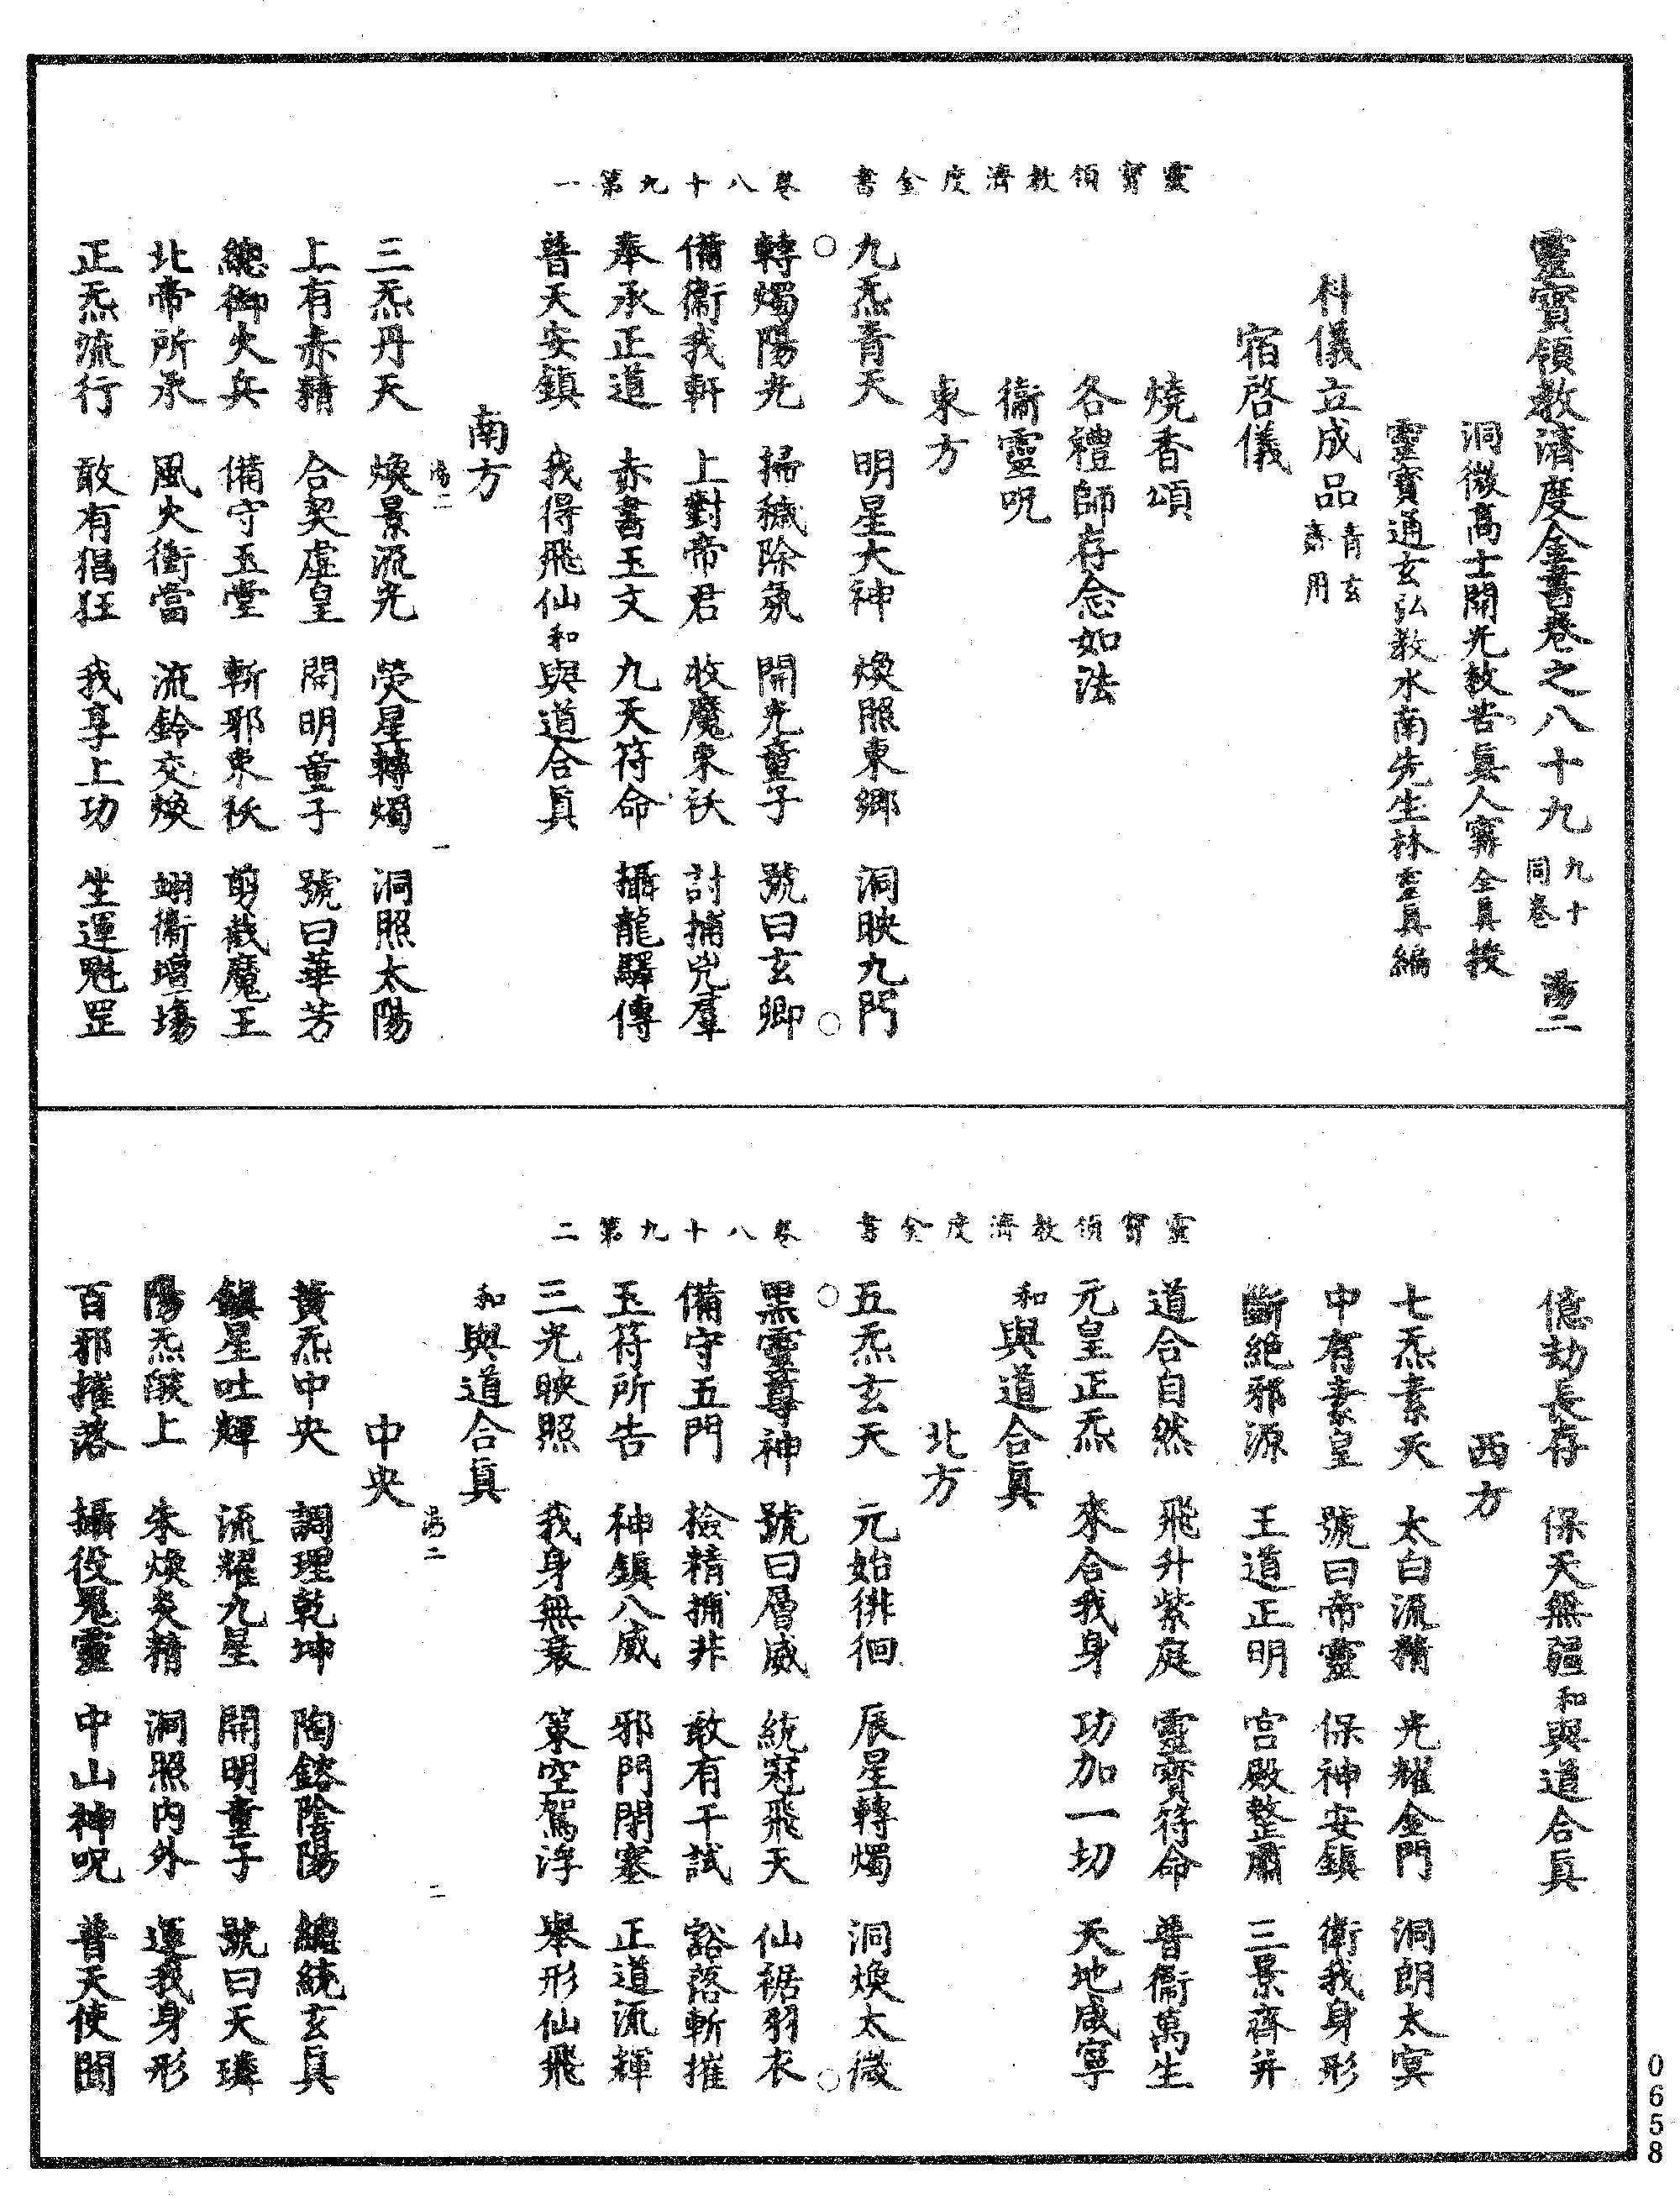 靈寶領教濟度金書卷之八十九 九十同卷 蕩二
洞微高士開光救苦真人寗全真授
靈寶通玄弘教水南先生林靈真編
科儀立成品 青玄齋用
宿啓儀
燒香頌
各禮師存念如法
衞靈呪
東方
九炁青天 明星大神 煥照東鄉 洞映九門
靈寶領教濟度金書 卷八十九第一
轉燭陽光 掃穢除氛 開光童子 號曰玄卿
備衞我軒 上對帝君 收魔束祅 討捕兇羣
奉承正道 赤書玉文 九天符命 攝龍驛傳
普天安鎮 我得飛仙 和 與道合真
南方
蕩二 一
三炁丹天 煥景流光 熒星轉燭 洞照太陽
上有赤精 合契虛皇 開明童子 號曰華芳
總御火兵 備守玉堂 斬邪束祅 剪截魔王
北帝所承 風火衝當 流鈴交煥 翊衞壇場
正炁流行 敢有猖狂 我享上功 坐運魁罡
億劫長存 保天無疆 和與道合真
西方
七炁素天 太白流精 光耀金門 洞朗太冥
中有素皇 號曰帝靈 保神安鎮 衞我身形
斷絕邪源 王道正明 宮殿整肅 三景齊并
道合自然 飛升紫庭 靈寶符命 普衞萬生
元皇正炁 來合我身 功加一切 天地咸寧
和與道合真
北方
五炁玄天 元始徘徊 辰星轉燭 洞煥太微
靈寶領教濟度金書 卷八十九第二
黑靈尊神 號曰層威 統冠飛天 仙裾羽衣
備守五門 檢精捕非 敢有干試 豁落斬摧
玉符所告 神鎮八威 邪門閉塞 正道流輝
三光映照 我身無衰 策空駕浮 舉形仙飛
和與道合真
蕩二 二
中央
黃炁中央 調理乾坤 陶鎔陰陽 總統玄真
鎮星吐輝 流耀九星 開明童子 號曰天璘
陽炁燄上 朱煥炎精 洞照内外 運我身形
百邪摧落 攝役鬼靈 中山神呪 普天使聞
0658